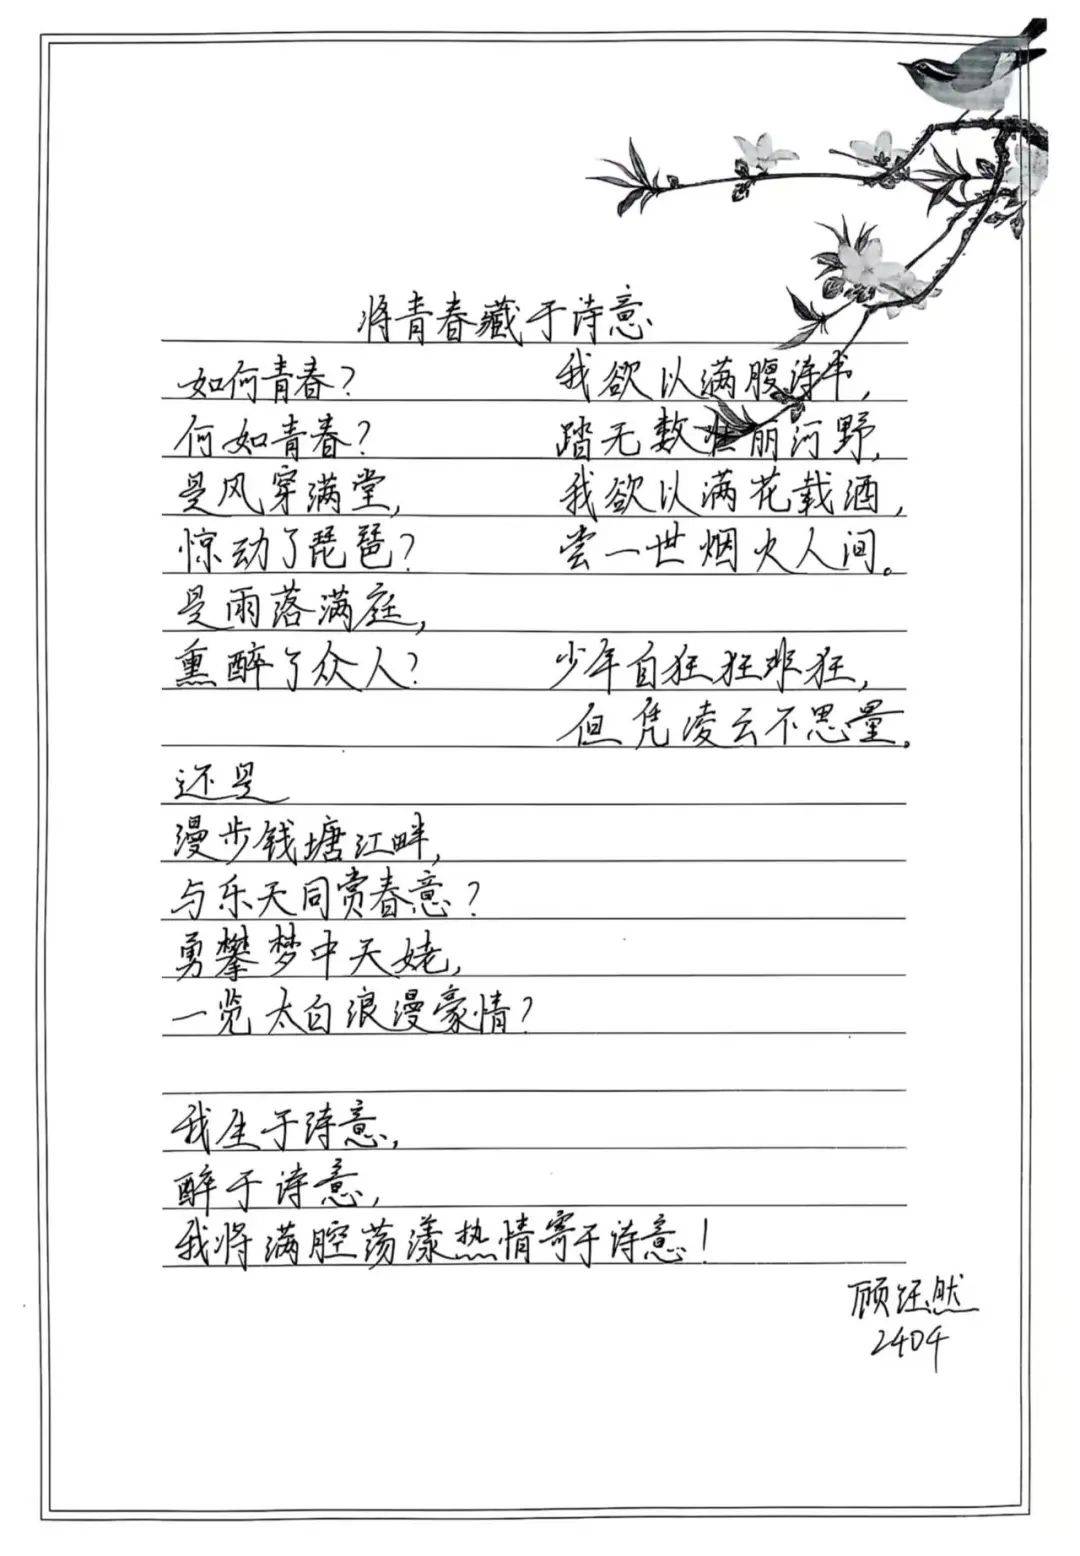 将青春藏于诗意
如何青春?
何如青春?
是风穿满堂,
惊动了琵琶?
是雨落满庭,
熏醉了众人?
还是
漫步钱塘江畔,
与乐天同赏春意?
勇攀梦中天姥,
一览太白浪漫豪情?
我生于诗意,
醉于诗意,
我将满腔荡漾热情寄于诗意!
我欲以满腹诗书,
踏无数壮丽河野,
我欲以满花载酒,
尝一世烟火人间。
少年自狂狂非狂,
但凭凌云不思量。
顾钰然
2404